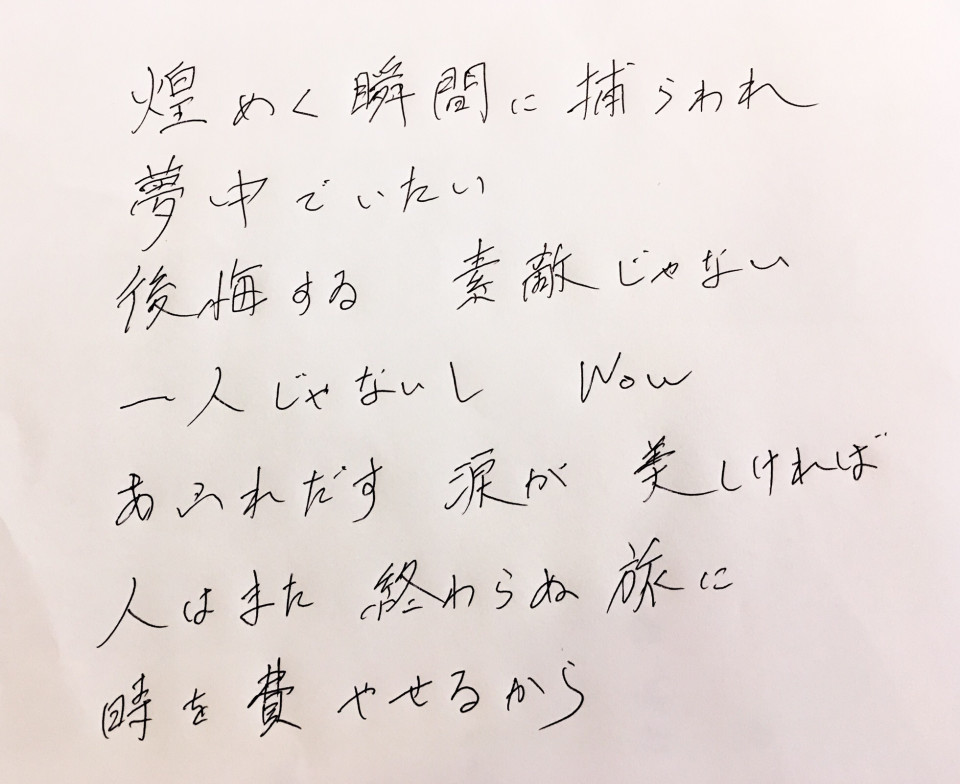 煌めく瞬間に捕らわれ
夢中でいたい
後悔する　素敵じゃない
一人じゃないし　Wow
あふれだす　涙が　美しければ
人はまた　終わらぬ旅に
時を費やせるから